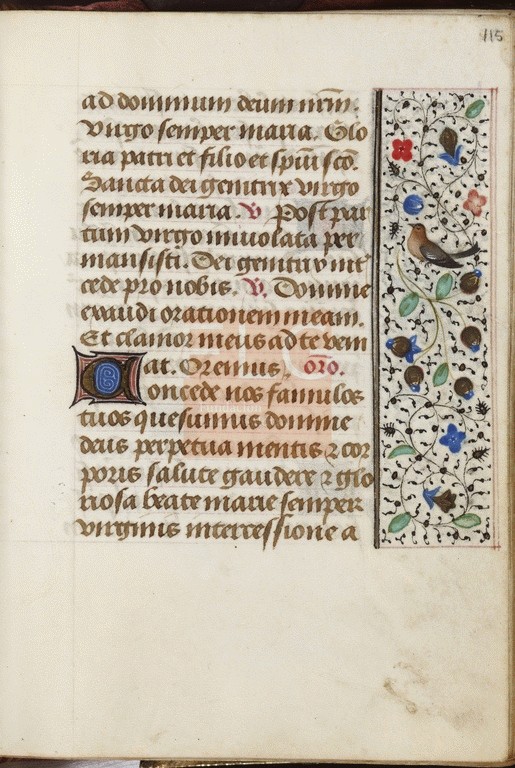 115
ad dominum deum nrm̄.
Virgo semper maria. Glo
ria patri et filio et spiui scō.
Sancta dei genitrix virgo
semper maria. V. Post par
tum virgo inuiolata per
mansisti. Dei genitrix int̄
cede pro nobis. V. Domine
exaudi orationem meam.
Et clamor meus ad te veni
at. Oremus. oro.
Concede nos famulos
tuos quesumus domine
deus perpetua mentis ⁊ cor
poris salute gaudere ⁊ glo
riosa beate marie semper
virginis intercessione a